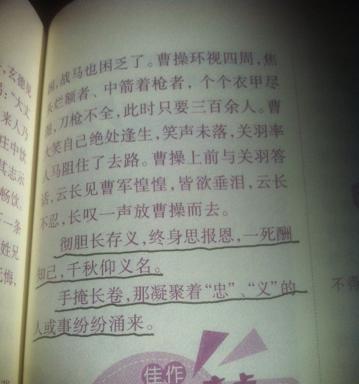 困,战马也困乏了。曹操环视四周,焦
头烂额者、中箭着枪者,个个衣甲尽
刀枪不全,此时只要三百余人。曹
大笑自己绝处逢生,笑声未落,关羽率
人马阻住了去路。曹操上前与关羽答
话,云长见曹军惶惶,皆欲垂泪,云长
不忍,长叹一声放曹操而去。
彻胆长存义,终身思报恩,一死酬
知己,千秋仰义名。
手掩长卷,那凝聚着“忠”、“义”的
人或事纷纷涌来。
佳作